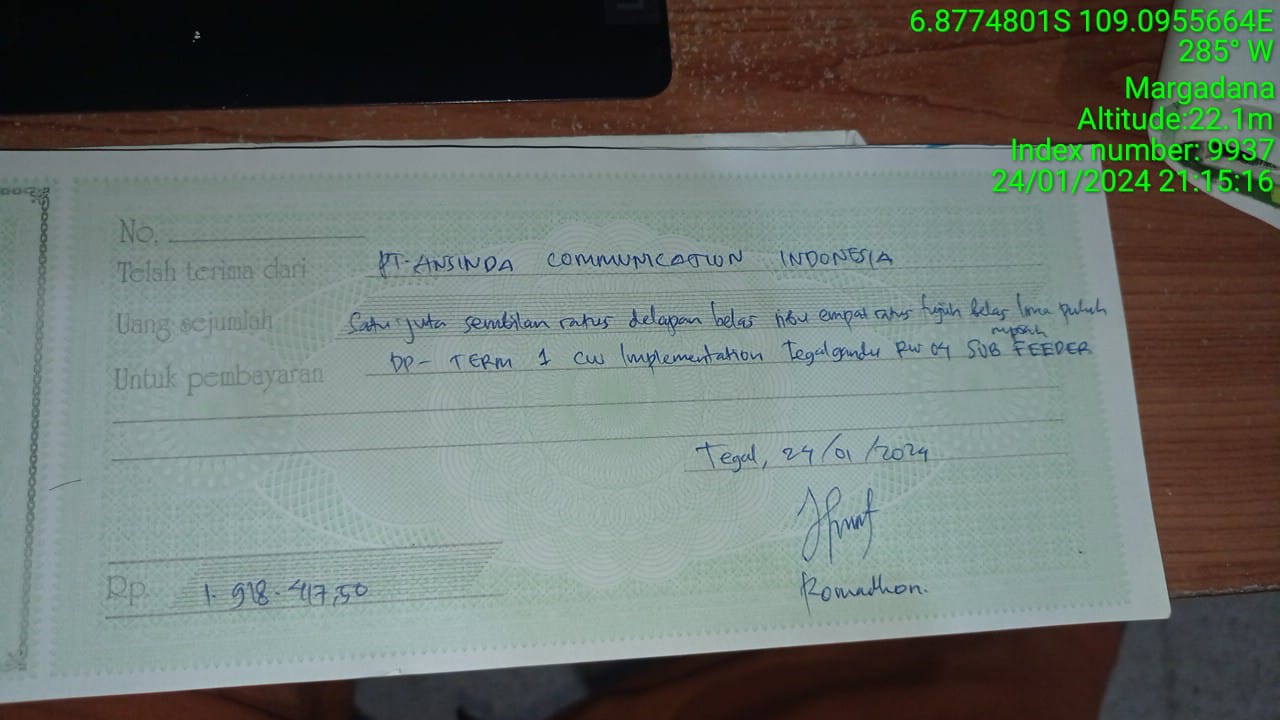 6.8774801S 109.0955664E
285° W
Margadana
Altitude:22.1m
Index number: 9937
24/01/2024 21:15:16
No.
Telah terima dari PT. ANSINDA COMMUNICATION INDONESIA
Uang sejumlah Satu juta sembilan ratus delapan belas ribu empat ratus tujuh belas lima puluh
rupiah
Untuk pembayaran DP- TERM 1 CW Implementation Tegalgandu RW 04 SUB FEEDER
Tegal, 24/01/2024
Rp. 1.918.417,50
Romadhon.